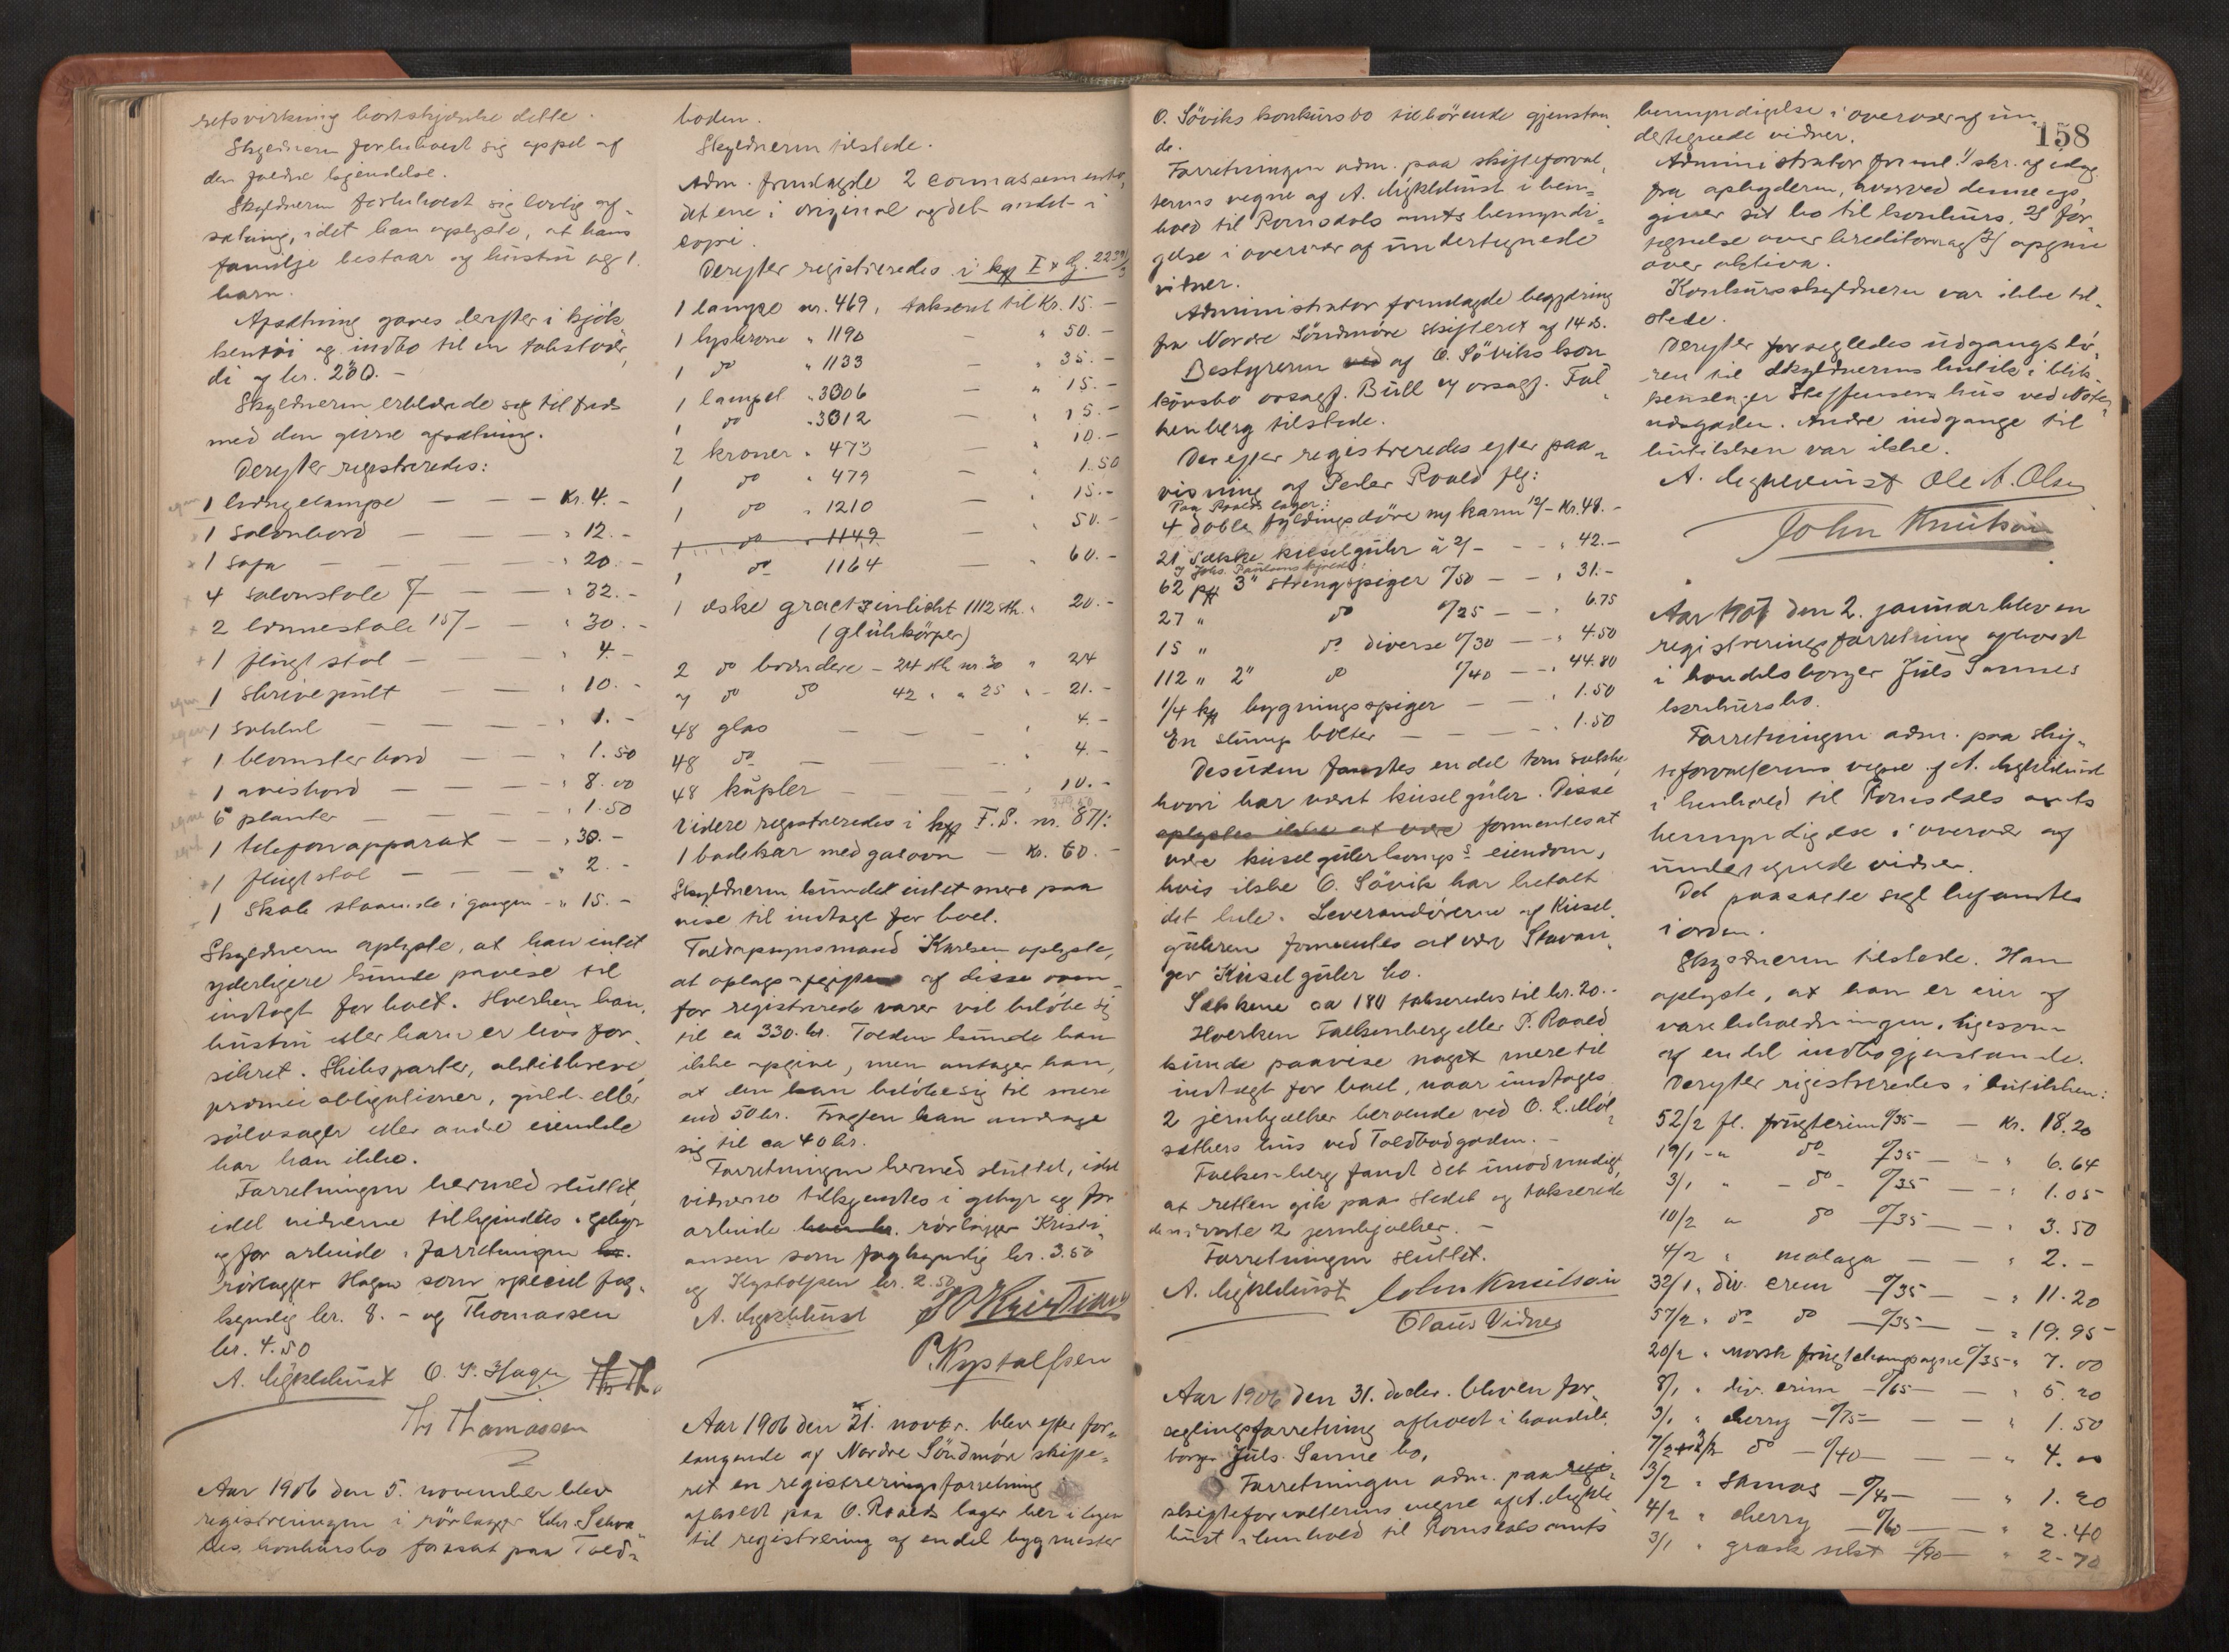 retsvirkning bortskjænke dette.
Skyldneren forbeholdt sig appel af
den faldne kjendelse.
Skyldneren forbeholdt sig lovlig af-
sætning, idet han oplyste, at hans
familje bestaar af hustru og 1
barn.
Afsætning gaves derefter i kjök-
kentöi og indbo til en takstvær-
di af kr. 200.-
Skyldneren erklærede sig tilfreds
med den givne afsætning.
Derefter registreredes:
egen 1 hængelampe — — — Kr. 4.-
1 salonbord — — — " 12.-
+ 1 sofa — — — — " 20.-
+ 4 salonstole 8/- — — " 32.-
+ 2 lænestole 15/- — — " 30.-
+ 1 flugtstol — — — " 4.-
egen 1 skrivepult — — — " 10.-
egen 1 sokkel — — — — " 1.-
+ 1 blomsterbord — — " 1.50
+ 1 avisbord — — — " 8.00
egne 6 planter — — — — " 1.50
1 telefonapparat — — " 30.-
+ 1 flugtstol — — — " 2.-
1 skab staaende i gangen - " 15.-
Skyldneren oplyste, at han intet
yderligere kunde paavise til
indtægt for boet. Hverken han,
hustru eller barn er livsfor-
sikret. Skibsparter, aktiebreve,
præmieobligationer, guld- eller
sölvsager eller andre eiendele
har han ikke.
Forretningen hermed sluttet,
idet vidnerne tilkjendtes i gebyr
og for arbeide i forretningen kr.
rörlægger Hagen som speciel fag-
kyndig kr. 8.- og Thomassen
kr. 4.50
A. Myklebust O. P. Hagen Th Th.
Th Thomassen
Aar 1906 den 5. november blev
registreringen i rörlægger Chr. Schva-
bes konkursbo fortsat paa Told-
boden.
Skyldneren tilstede.
Adm. fremlagde 2 connassementer,
det ene i original og det andet i
copi.
Derefter registreredes i kss I & G. 2239/3
1 lampe nr. 469, takseret til Kr. 15.-
1 lyskrone " 1190 — " 50.-
1 do " 1133 — " 35.-
1 lampet " 3306 — " 15.-
1 do " 3312 — " 15.-
2 kroner " 473 — " 10.-
1 do " 479 — " 1.50
1 do " 1210 — " 15.-
1 do " 1149 — " 50.-
1 do 1164 — " 60.-
1 æske graetzinlicht 1112 stk. " 20.-
(glühkörper)
2 do brændere - 24 stk nr 30 " 24
4 do do 42 " " 25 " - 21.-
48 glas — — — " 4.-
48 do — — — " 4.-
48 kupler — — — " 10.-
Videre registreredes i kss F. S. nr. 871:
1 badekar med gasovn — Kr. 60.-
Skyldneren kunde intet mere paa-
vise til indtægt for boet.
Toldopsynsmand Karlsen oplyste,
at oplagsafgiften af disse oven-
for registrerede varer vil belöbe sig
til ca 330 kr. Tolden kunde han
ikke opgive, men antager han,
at den kan belöbe sig til mere
end 50 kr. Fragten kan andrage
sig til ca 40 kr.
Forretningen hermed sluttet, idet
vidnerne tilkjendtes i gebyr og for
arbeide rörlægger Kristi-
ansen som fagkyndig kr. 3.50
og Kystolfsen kr. 2.50
A. Myklebust Kristiansen
P. Kystolfsen
Aar 1906 den 21. novbr. blev efter for-
langende af Nordre Söndmöre skifte-
ret en registreringsforretning
afholdt paa O. Roalds lager her i byen
til registrering af endel bygmester
O. Söviks konkursbo tilhörende gjenstan-
de.
Forretningen adm. paa skifteforval-
terens vegne af A. Myklebust i hen-
hold til Romsdals amts bemyndi-
gelse i overvær af undertegnede
vidner.
Administrator fremlagde begjæring
fra Nordre Söndmöre skifteret af 14 ds.
Bestyreren ved af O. Söviks kon-
kursbo orsagf. Bull og orsagf. Fal-
kenberg tilstede.
Derefter registreredes efter paa-
visning af Peder Roald flg:
Paa Roalds lager:
4 doble fyldingsdöre m/karm 12/- Kr. 48.-
21 sække kiselguhr à 2/- - - " 42.-
62 pk 3" strengspiger 0/50 — — " 31.-
27 " do 0/25 — — " 6.75
15 " do diverse 0/30 — " 4.50
112 " 2" do 0/40 — — " 44.80
1/4 ks bygningsspiger — — " 1.50
En slump bolter — — — " 1.50
Desuden fandtes en del tomsække,
hvori har været kiselguhr. Disse
oplystes ikke at være formentes at
være kiselguhrkomps eiendom,
hvis ikke O. Sövik har betalt
det hele. Leverandörerne af kisel-
guhren formentes at være Stavan-
ger Kiselguhr Co.
Sækkene ca 180 takseredes til kr. 20.-
Hverken Falkenberg eller P. Roald
kunde paavise noget mere til
indtægt for boet, naar undtages
2 jernbjælker beroende ved O. L. Möl-
sæthers hus ved Toldbodgaden.-
Falkenberg fandt det unödvendigt,
at retten gik paa stedet og takserede
de nævnte 2 jernbjælker.-
Forretningen sluttet.
A. Myklebust John Knutson
Olaus Vidnes
Aar 1906 den 31. decbr. blev en for-
seglingsforretning afholdt i handels-
borger Juls Sanne bo.
Forretningen adm. paa
skifteforvalterens vegne af A. Mykle-
bust i henhold til Romsdals amts
158
bemyndigelse i overvær af un-
dertegnede vidner.
Administrator freml. 1/ skr. af idag
fra opbyderen, hvorved denne op-
giver sit bo til konkurs, 2/ for-
tegnelse over kreditorer og 3/ opgave
over aktiva.
Konkursskyldneren var ikke til-
stede.
Derefter forsegledes udgangsdö-
ren til skyldnerens butik i blik-
kenslager Steffensens hus ved Nöten-
æsgaden. Andre indgange til
butikken var ikke.
A. Myklebust Ole A. Olsen
John Knutson
Aar 1907 den 2. januar blev en
registreringsforretning afholdt
i handelsborger Juls Sannes
konkursbo.
Forretningen adm. paa skif-
teforvalterens vegne af A. Myklebust
i henhold til Romsdals amts
bemyndigelse i overvær af
undertegnede vidner.
Det paasatte segl befandtes
i orden.
Skyldneren tilstede. Han
oplyste, at han er eier af
varebeholdningen, ligesom
af endel indbogjenstande.
Derefter registreredes i butikken:
52/2 fl. frugterim 0/35 — — Kr. 18.20
19/1 - " do 0/35 — — " 6.64
3/1 " - do - 0/35 — — " 1.05
10/2 " do 0/35 — — " 3.50
4/2 " malaga — — " 2.-
32/1 " div. crem 0/35 — — " 11.20
57/2 " do do 0/35 — — " 19.95
20/2 " norsk frugtchampagne 0/35 " 7.00
8/1 " div. crim - 0/65 — — " 5.20
3/1 " cherry - 0/75 — — " 1.50
do - 0/40 — — " 4.00
3/2 " Samos - 0/40 — — " 1.20
4/2 " cherry - 0/60 — — " 2.40
3/1 " græsk 0/90 — " 2-70